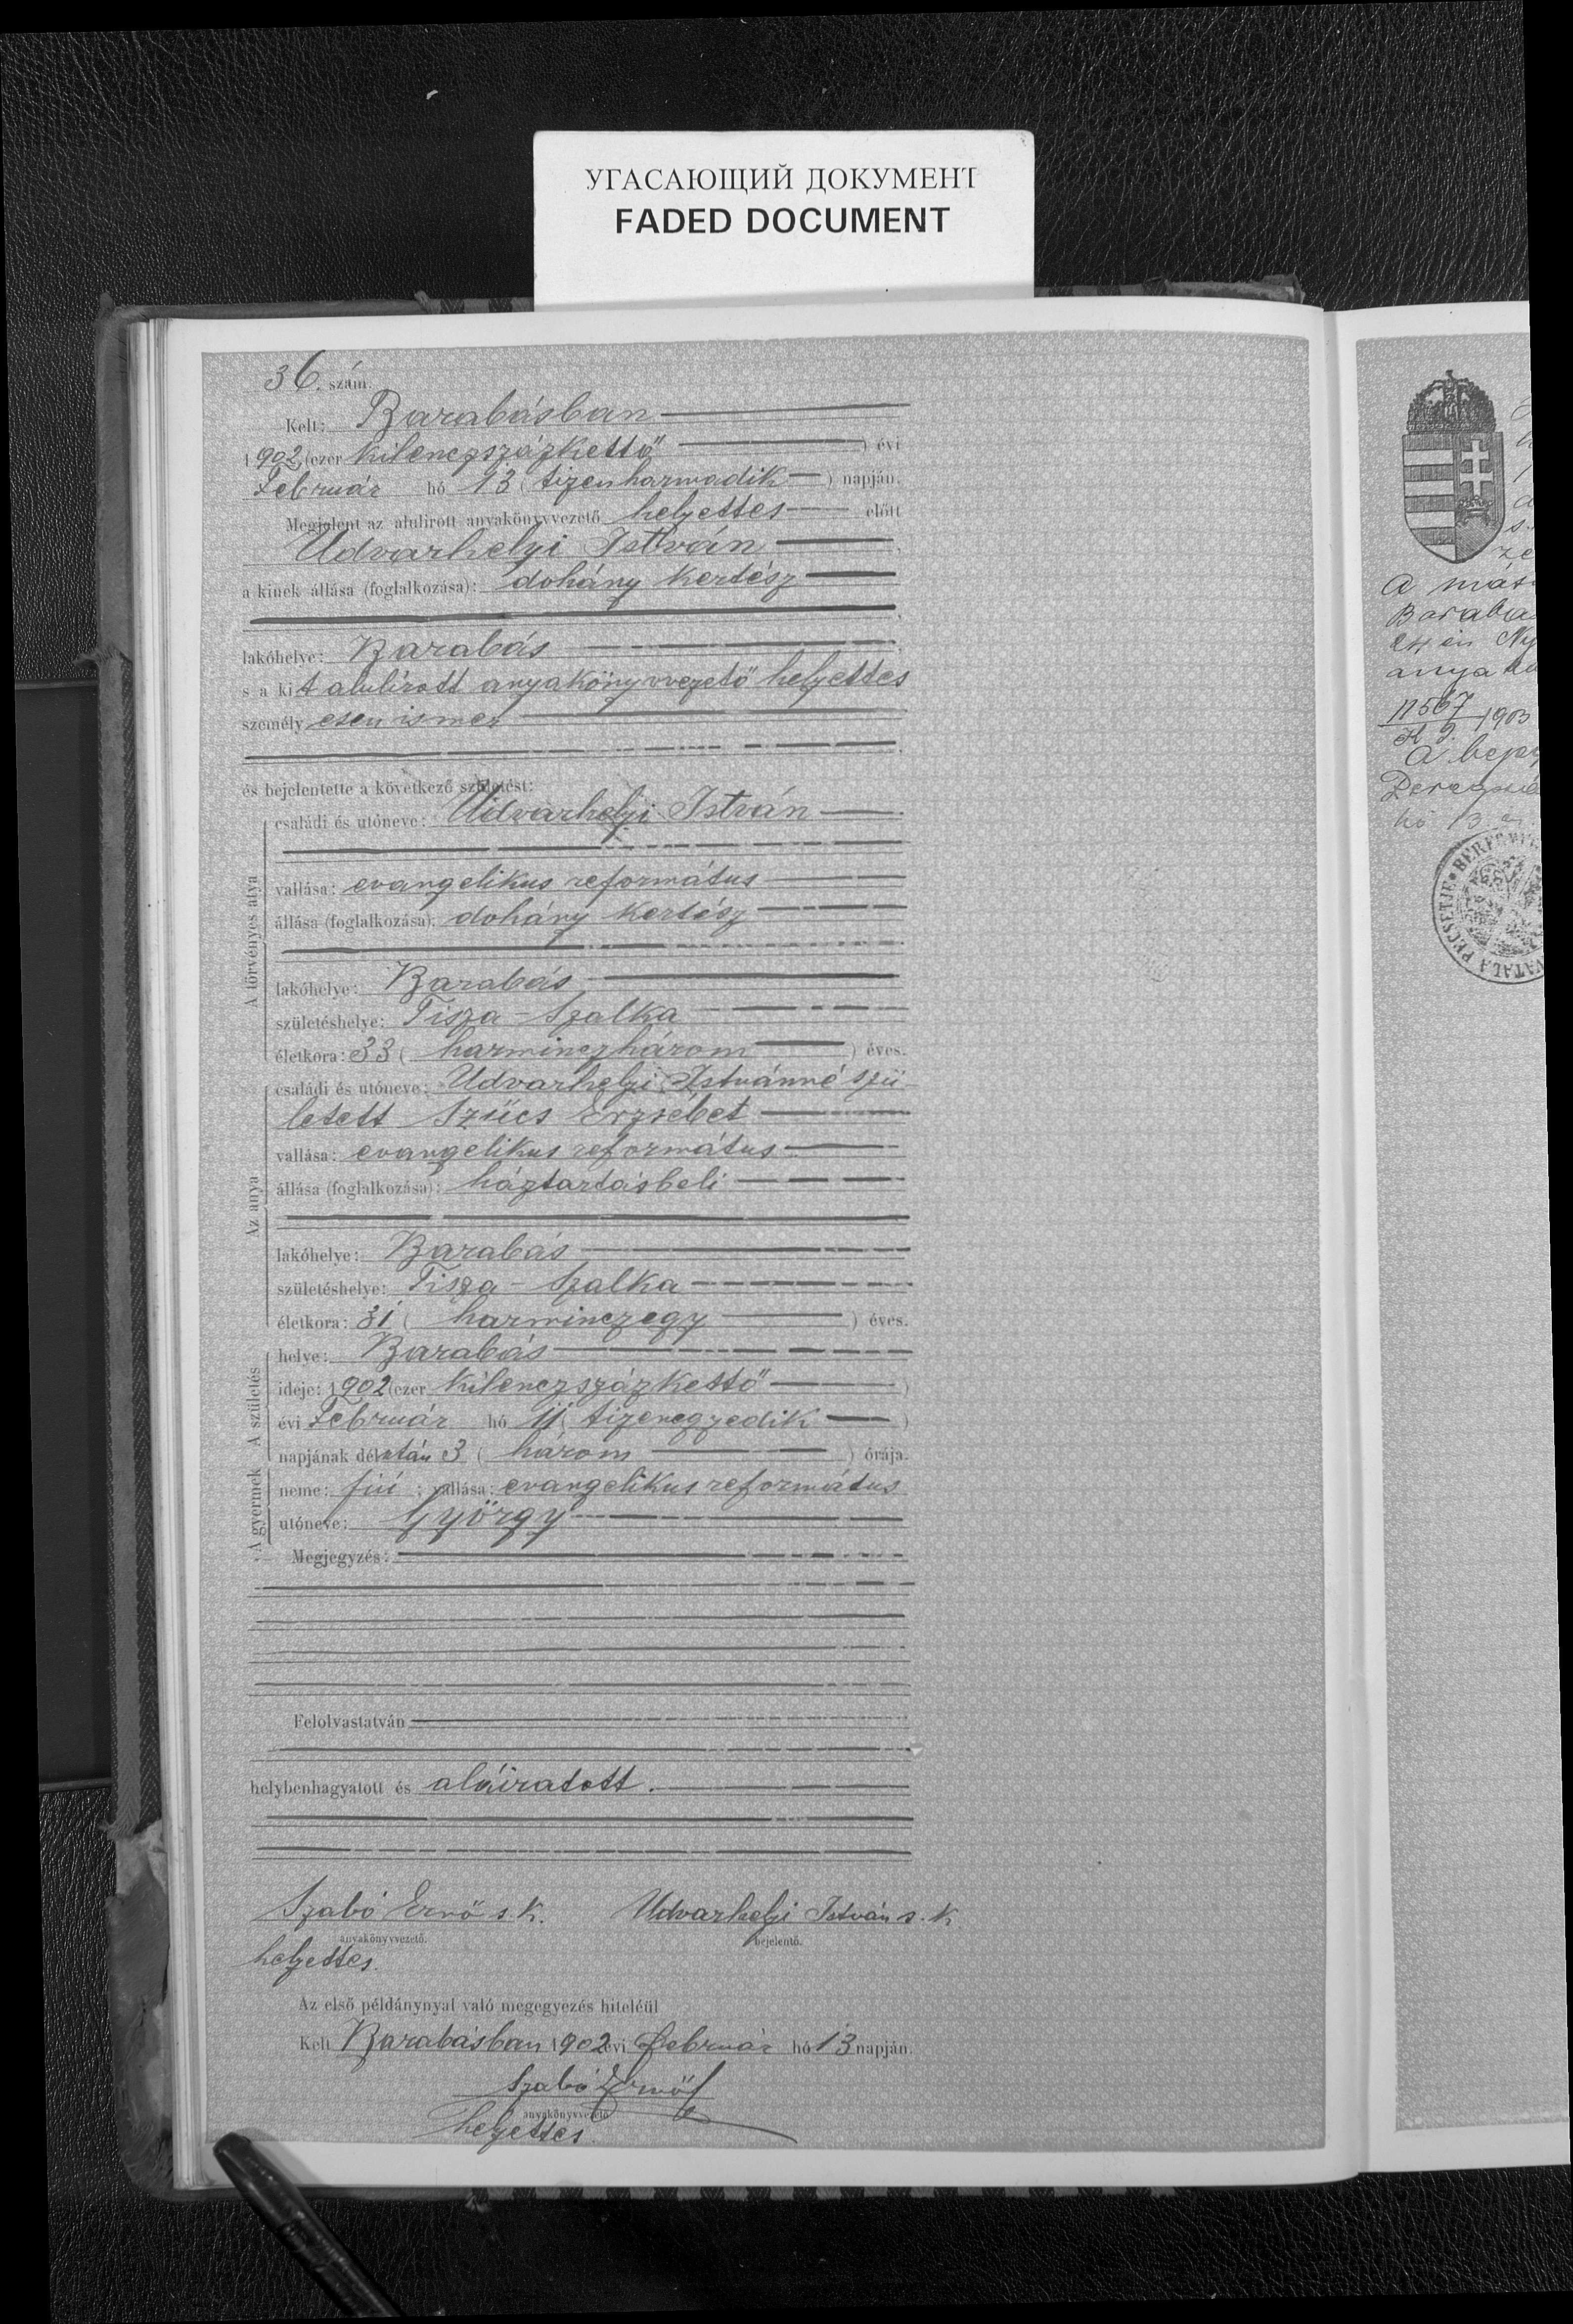 УГАСАЮЩИЙ ДОКУМЕНТ
FADED DOCUMENT
36. szám.
Kelt: Barabásban
1902 (ezer kilenczszázkettő) évi
Február hó 13 (tizenharmadik) napján.
Megjelent az alulirott anyakönyvvezető helyettes előtt
Udvarhelyi István
a kinek állása (foglalkozása): dohány kertész
lakóhelye: Barabás
s a kit alulírott anyakönyvvezető helyettes
személyesen ismer
és bejelentette a következő születést:
A törvényes atya
családi és utóneve: Udvarhelyi István
vallása: evangelikus református
állása (foglalkozása): dohány kertész
lakóhelye: Barabás
születéshelye: Tisza-Szalka
életkora: 33 (harminczhárom) éves.
Az anya
családi és utóneve: Udvarhelyi Istvánné szü-
letett Szűcs Erzsébet
vallása: evangelikus református
állása (foglalkozása): háztartásbeli
lakóhelye: Barabás
születéshelye: Tisza-Szalka
életkora: 31 (harminczegy) éves.
A születés
helye: Barabás
ideje: 1902 (ezer kilenczszázkettő)
évi Február hó 11 (tizenegyedik)
napjának délután 3 (három) órája.
A gyermek
neme: fiú; vallása: evangelikus református
utóneve: György
Megjegyzés:
Felolvastatván
helybenhagyatott és aláiratott.
Szabó Ernő s. k. Udvarhelyi István s. k.
anyakönyvvezető. bejelentő.
helyettes.
Az első példánynyal való megegyezés hiteléül
Kelt Barabásban 1902 évi február hó 13 napján.
Szabó Ernő
anyakönyvvezető
helyettes.
a más
Baraba
24 én
anya
11567
1903
a
hó 13